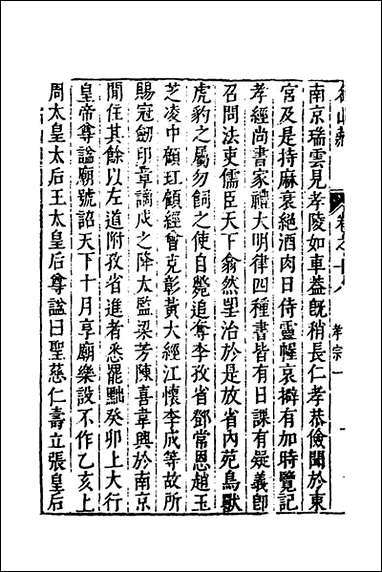 名山藏 卷之十八 孝宗一
南京瑞雲見孝陵如車蓋旣稍長仁孝恭儉聞於東
宮及是持麻衰絶酒肉日侍靈幄哀擗有加時覽記
孝經尚書家禮大明律四種書皆有日課有疑義卽
召問法吏儒臣天下翕然望治於是放省內苑鳥獸
虎豹之屬勿飼之使自斃追奪李孜省鄧常恩趙玉
芝凌中顧玒顧經曾克彰黃大經江懷李成等故所
賜冠劒印章謫戍之降太監梁芳陳喜韋興於南京
閒住其餘以左道附孜省進者悉罷黜癸卯上大行
皇帝尊謚廟號詔天下十月享廟樂設不作乙亥上
周太皇太后王太皇后尊謚曰聖慈仁壽立張皇后